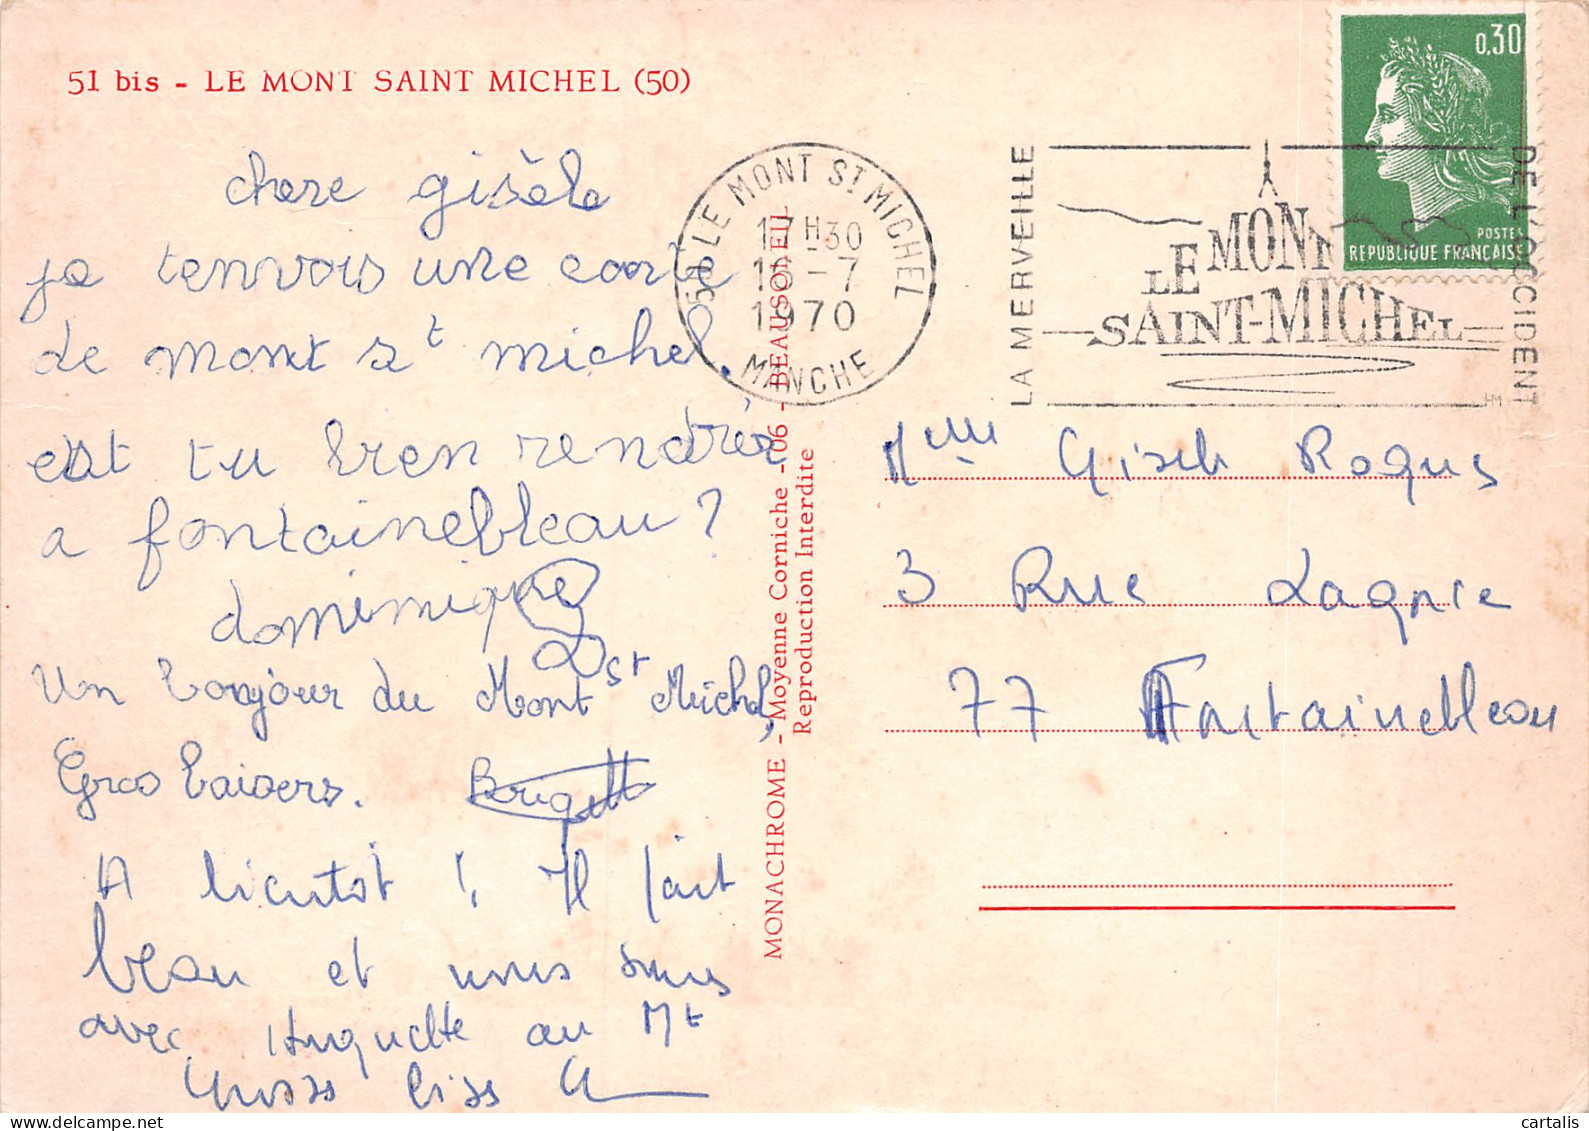 51 bis - LE MONT SAINT MICHEL (50)
0,30
POSTES
REPUBLIQUE FRANÇAISE
50 LE MONT ST MICHEL
17H30
-7
1970
MANCHE
LA MERVEILLE
LE MONT
SAINT-MICHEL
DE L'OCCIDENT
HM
chere gisèle
je tenvois une carte
de mont st michel.
est tu bien rendrée
a fontainebleau ?
dominique
Un bonjour du Mont St Michel,
Gros baisers. Brigitte
A bientôt ! Il fait
beau et nous sommes
avec Huguette au Mt
Grosses bises
MONACHROME - Moyenne Corniche - 06 - BEAUSOLEIL
Reproduction Interdite
Melle Gisele Roques
3 Rue Lagorce
77 Fontainebleau
cartalis